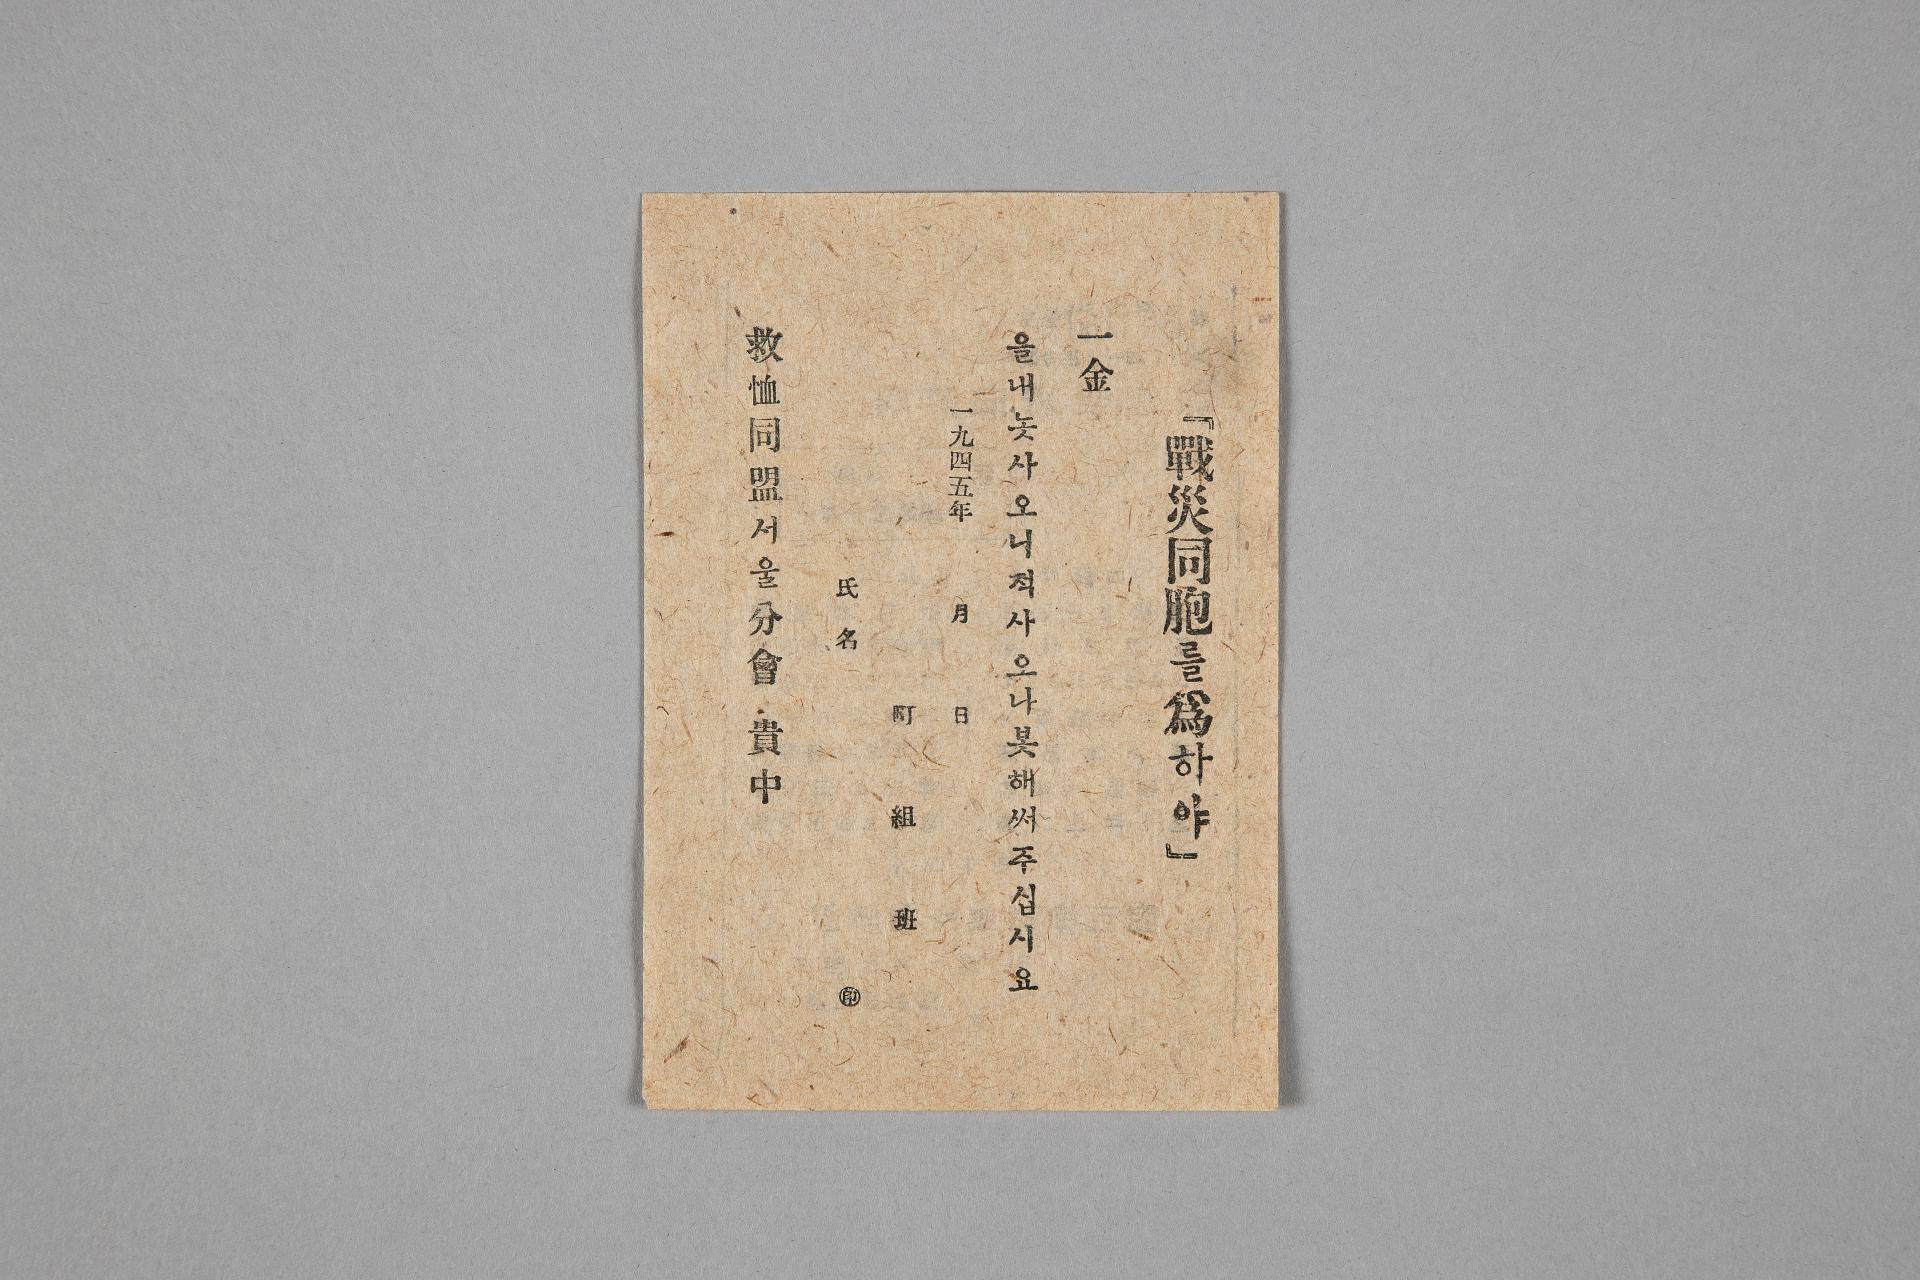 『戰災同胞를爲하야』
一金
을내놋사오니적사오나봇해써주십시요
一九四五年 月 日
町 組 班
氏名 ㊞
救恤同盟서울分會 貴中